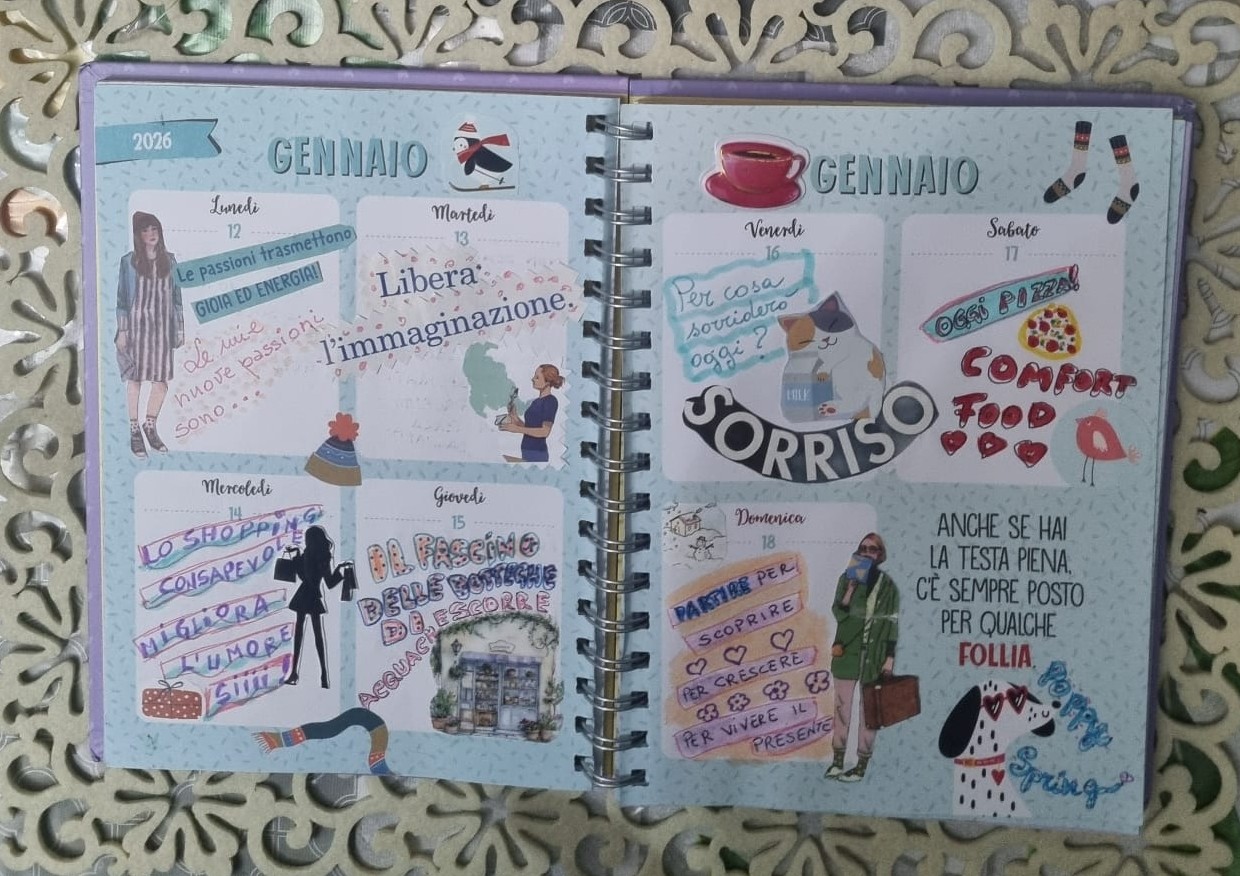 2026
GENNAIO
Lunedì
12
Le passioni trasmettono
GIOIA ED ENERGIA!
Le mie
nuove passioni
sono...
Martedì
13
Libera
l'immaginazione.
Mercoledì
14
LO SHOPPING
CONSAPEVOLE
MIGLIORA
L'UMORE
SIIII!
Giovedì
15
IL FASCINO
DELLE BOTTEGHE
DI ESCORRE
ACQUACHE
GENNAIO
Venerdì
16
Per cosa
sorriderò
oggi?
MILK
SORRISO
Sabato
17
OGGI PIZZA!
COMFORT
FOOD
Domenica
18
PARTIRE PER
SCOPRIRE
PER CRESCERE
PER VIVERE IL
PRESENTE
ANCHE SE HAI
LA TESTA PIENA,
C'È SEMPRE POSTO
PER QUALCHE
FOLLIA.
Poppy
Spring